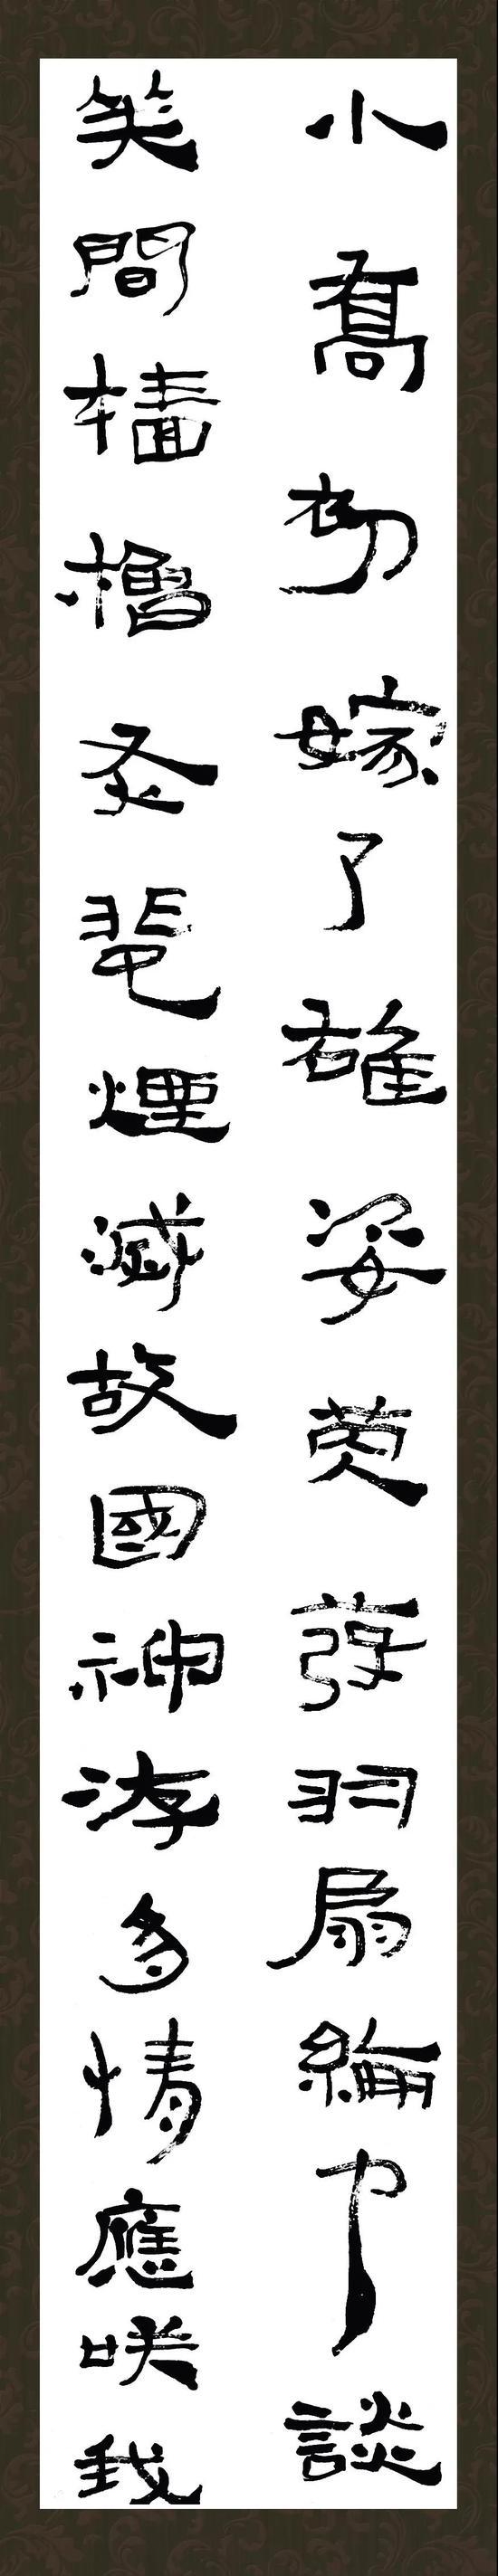 小喬初嫁了雄姿英發羽扇綸巾談
笑間檣櫓灰飛煙滅故國神游多情應咲我